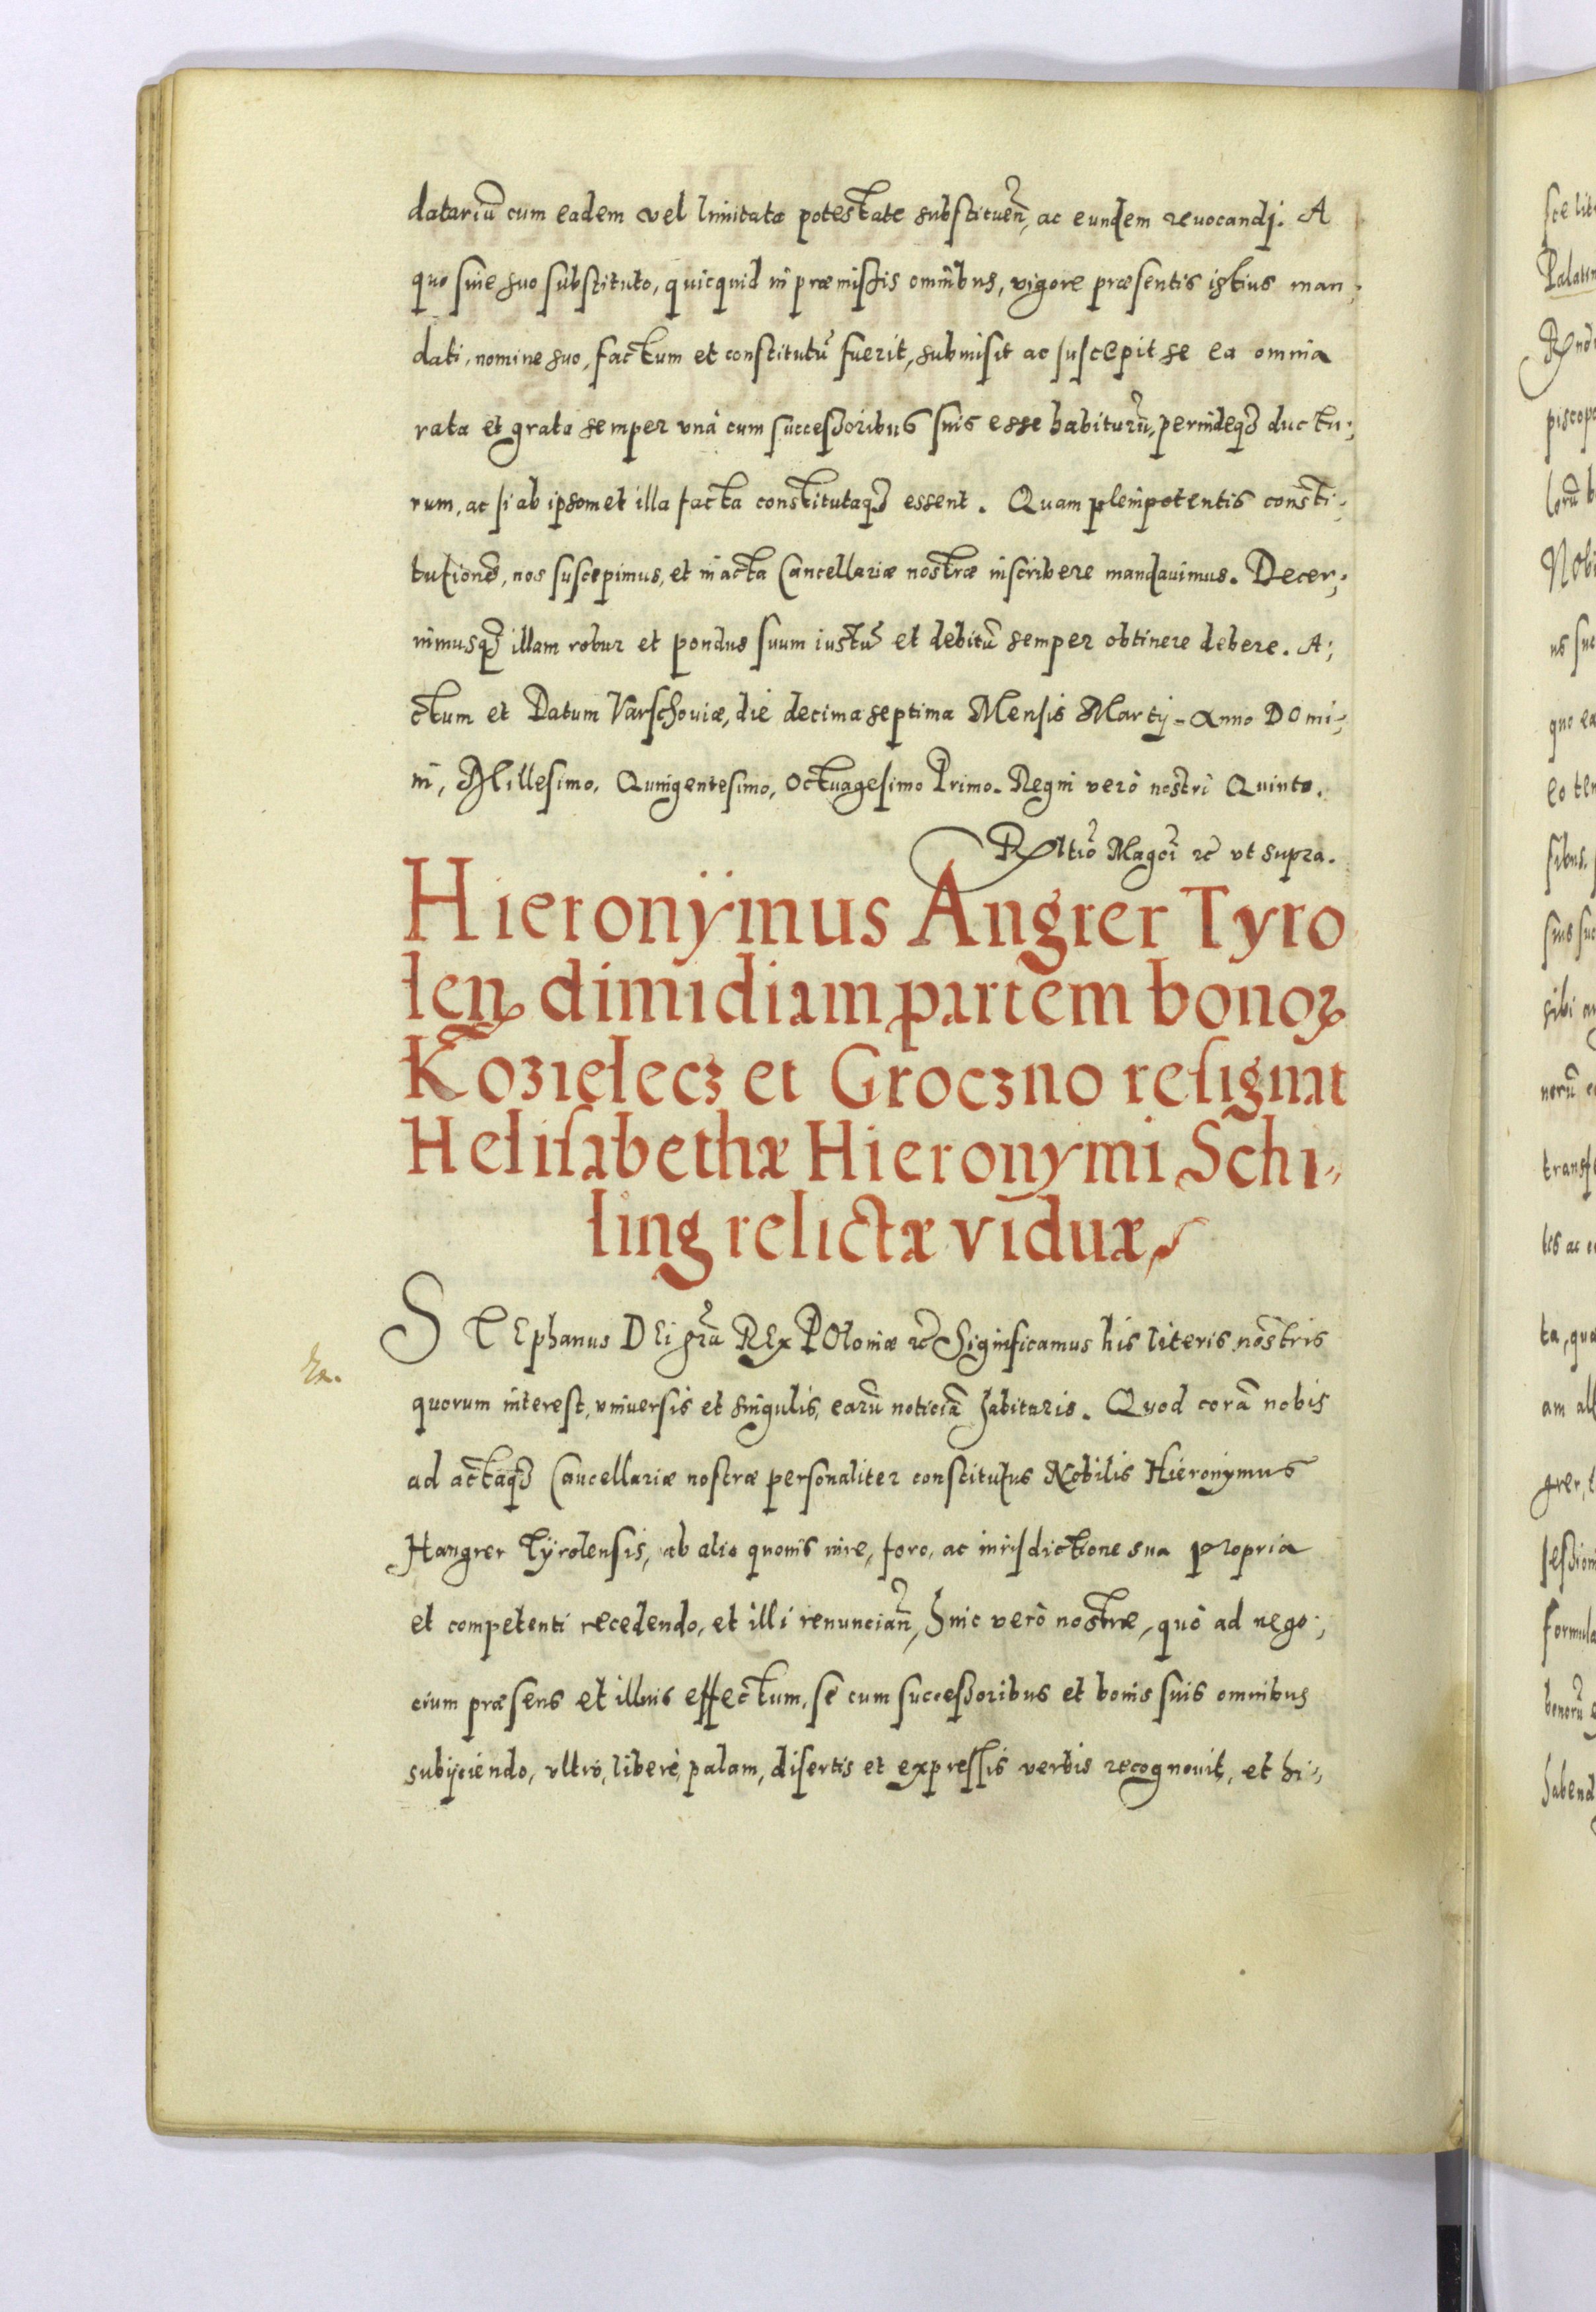 datariũ cum eadem vel limitata potestate substituẽn, ac eundem reuocandj. A
quo siue suo substituto, quicquid in præmissis omnibus, vigore præsentis istius man;
dati, nomine suo, factum et constitutũ fuerit, submisit ac suscepit se ea omnia
rata et grata semper vnà cum successoribus suis esse habiturũ, perindeqꝫ ductu;
rum, ac si ab ipsomet illa facta constitutaqꝫ essent. Quam plenipotentis consti;
tutionẽ, nos suscepimus, et in acta Cancellariæ nostræ inscribere mandauimus. Decer;
nimusqꝫ illam robur et pondus suum iustũ et debitũ semper obtinere debere. A;
ctum et Datum Varschouiæ, die decima septima Mensis Martij. Anno Domi;
ni, Millesimo, Quingentesimo, Octuagesimo Primo. Regni verò nostri Quinto.
Rltio Magci ꝛc̃ vt supra.
Hieronÿmus Angrer Tyro
leñ dimidiam partem bonoꝝ
Kozielecz et Groczno resignat
Helisabethæ Hieronymi Schi„
ling relictæ viduæ
STEphanus DEi grã REx POloniæ ꝛc̃ Significamus his literis nostris
quorum interest, vniuersis et singulis, earũ noticiã habituris. Quod corã nobis
ad actaqꝫ Cancellariæ nostræ personaliter constitutus Nobilis Hieronymus
Hangrer Tÿrolensis, ab alio quouis iure, foro, ac iurisdictione sua propria
et competenti recedendo, et illi renunciañ, Huic verò nostræ, quò ad nego;
cium præsens et illius effectum, se cum successoribus et bonis suis omnibus
subijciendo, vltrò, liberè, palam, disertis et expressis verbis recognouit, et hi„